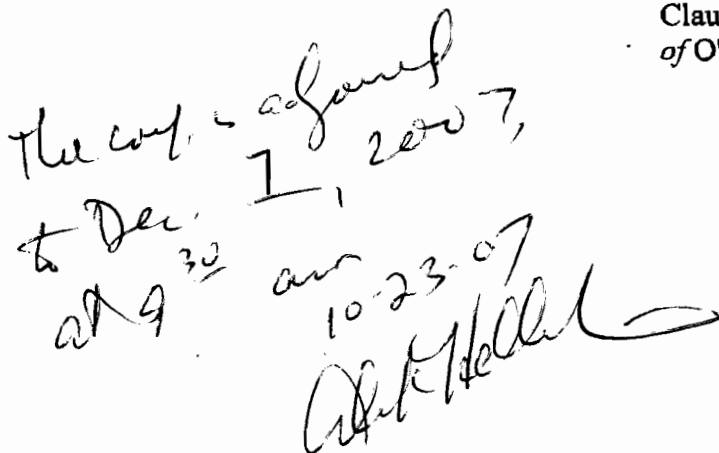 Clau
of O'
The conf. is adjourned
to Dec. 7, 2007,
at 9 30 am
10-23-07